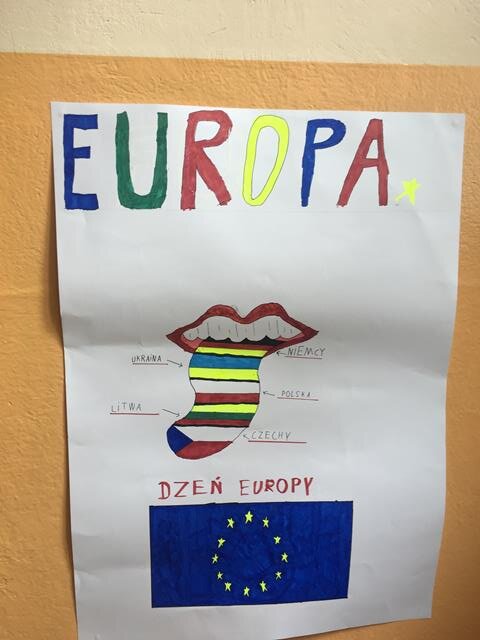 EUROPA
UKRAINA
NIEMCY
POLSKA
LITWA
CZECHY
DZEŃ EUROPY